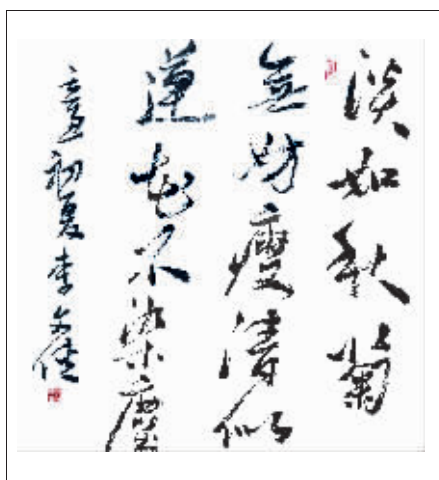 淡如秋菊
無妨瘦清似
蓮花不染塵
初夏李文